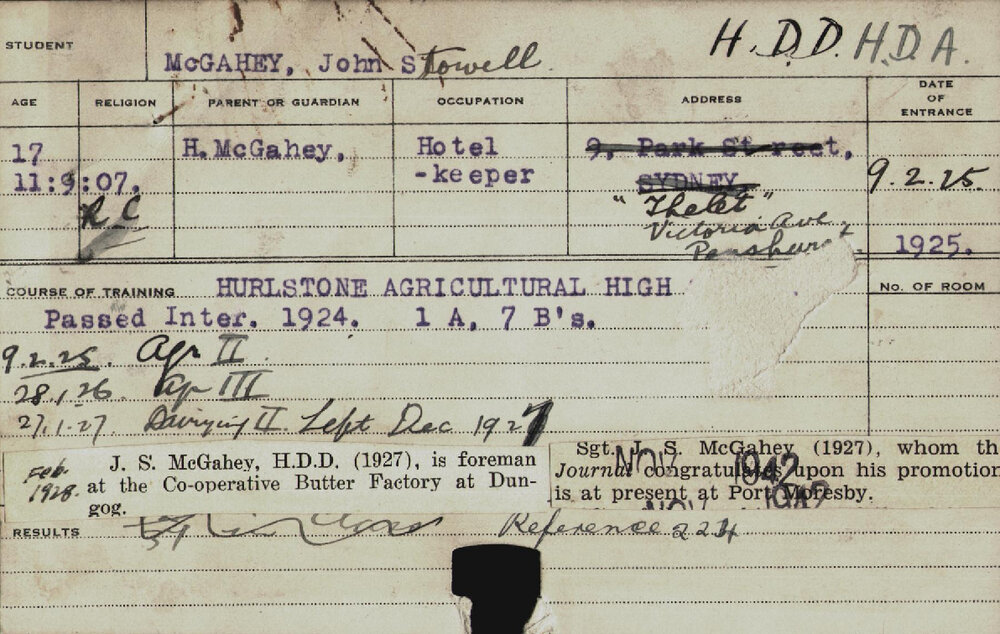 H.D.D. H.D.A.
STUDENT
McGAHEY, John Stowell.
AGE RELIGION PARENT OR GUARDIAN OCCUPATION ADDRESS DATE OF ENTRANCE
17 H. McGahey, Hotel 9, Park Street,
11:9:07. -keeper SYDNEY, 9.2.25.
R C "
Victoria Ave
Penshurst. 1925.
COURSE OF TRAINING HURLSTONE AGRICULTURAL HIGH No. OF ROOM
Passed Inter. 1924. 1 A, 7 B's.
9.2.25. Agr II
28.1.26 Agr III
27.1.27 Dairying II. Left Dec 1927
Feb. 1928.
J. S. McGahey, H.D.D. (1927), is foreman
at the Co-operative Butter Factory at Dun-
gog.
Sgt. J. S. McGahey (1927), whom th
Journal congratulates upon his promotion
is at present at Port Moresby.
NOV 1942
NOV 1942
RESULTS Reference 224